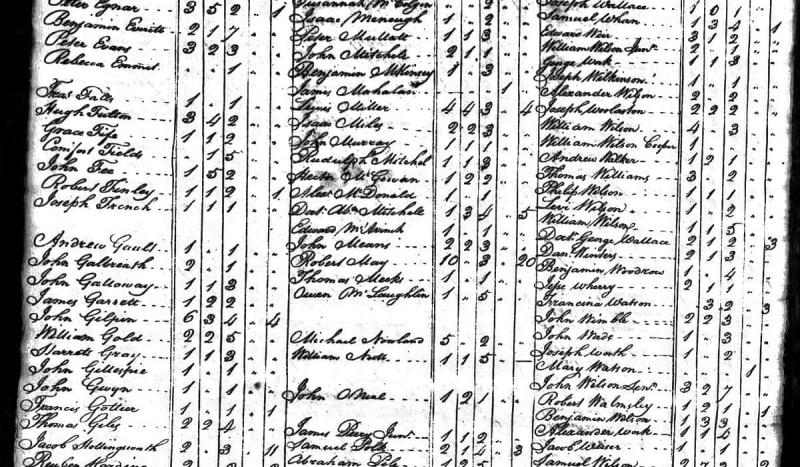 Peter Egnar 3 5 2 . 1
Benjamin Everitt 2 1 7
Peter Evans 3 2 3
Rebecca Emmet . . 1
Hugh Fulton 3 4 2
Grace Fife 1 1 2
Comfort Fields . 1 5
John Fee 1 5 2
Robert Finley 1 1 2 . 1
Joseph French 1 1 1
Andrew Gault 1 . 1
John Galbreath 2 . 1
John Galloway 1 1 3
James Garrett 1 2 2
John Gilpin 6 3 4 . 4
William Gold 2 2 5
Garrett Gray 1 1 3
John Gillespie 1 . 1
John Gwyn 1 . 1
Francis Gottier 1 . 1 . 1
Thomas Giles 2 2 4
Jacob Hollingsworth 2 . 3 . 11
Isaac Meneugh 1 . 2
Peter Mullatt 1 1 3
John Mitchell 2 1 1
Benjamin McKinsey 1 . 3
James Mahalan
Lewis Miller 4 4 3 . 4
Isaac Miles 2 2 3
John Murray 1 1 1
Rudulph Mitchel 1 1 3
McGowen 1 2 2
Alexr McDonald 1 . 1
Doct. Abm Mitchell 1 3 4 . 5
Edward
John Means 2 2 3
Robert May 10 . 3 . 20
Thomas Meeks 1 . 1
Owen McLaughlin 1 . 5
Michael Newland 5 . 2
William Nott 1 1 5
John ONeal 1 2 1
James Perry Junr 1 1 2
Samuel Polk 2 1 4 . 3
Abraham Pole 1 2 5
Joseph Wallace 1 0 1
Samuel Whan 1 3 4 . 1
Edward Weir 3 . 2
William Wilson Junr 2 . 1
George Work 1 1 3
Joseph Wilkinson 1 . 1
Alexander Wilson 2 . 2
Joseph Woolaston 2 2 2
William Wilson 4 . 3
William Wilson Cooper 1
Andrew Walker 1 2 1
Thomas Williams 3 . 2
Philip Wilson 1 . 1
Levi Watson 1 . 2
William Wilson 1 1 5
Doct. George Wallace 2 1 2 . 3
Dan. Winters 2 1 3
Benjamin Woodrow 1 . 4
Wherry 2 . 1
Francina Watson . 3 2 . 3
John Wimble 2 2 3
John Wade 1 . 3
Joseph Worth 1 . 2
Mary Watson
John Wilson Senr 3 2 7
Robert Walmsley 1 2 1 . 1
Benjamin Wilson 1 3 3
Alexander Work 1 1 4
Samuel Wilson